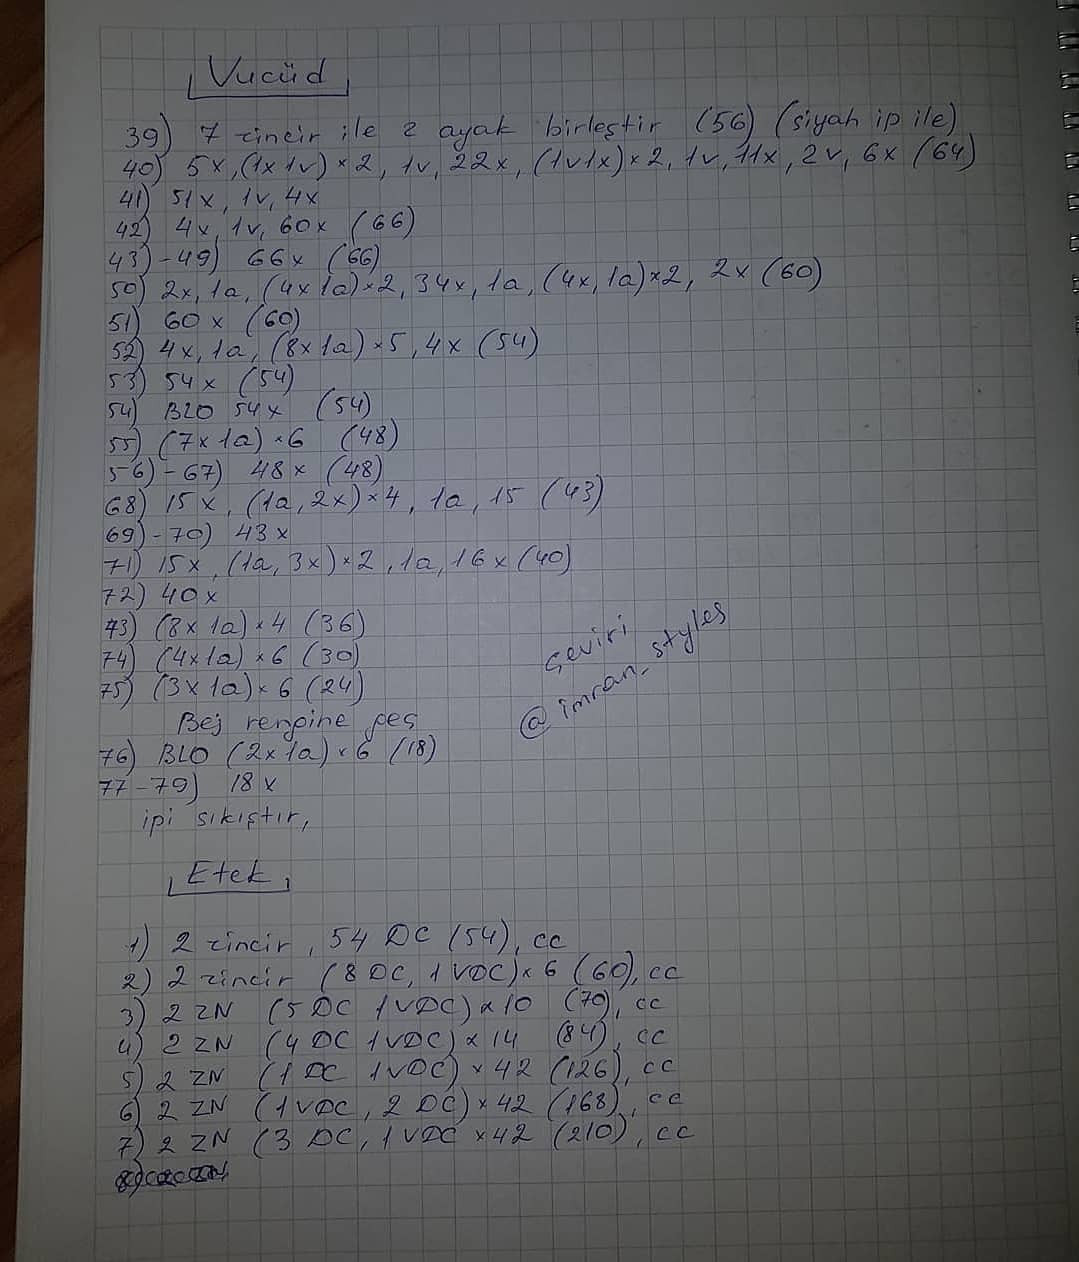 Vucüd
39) 7 zincir ile 2 ayak birleştir (56) (siyah ip ile)
40) 5x, (1x 1v) x 2, 1v, 22x, (1v 1x) x 2, 1v, 11x, 2v, 6x (64)
41) 51x, 1v, 4x
42) 4x, 1v, 60x (66)
43) - 49) 66x (66)
50) 2x, 1a, (4x 1a) x 2, 34x, 1a, (4x, 1a) x 2, 2x (60)
51) 60x (60)
52) 4x, 1a, (8x 1a) x 5, 4x (54)
53) 54x (54)
54) BLO 54x (54)
55) (7x 1a) x 6 (48)
56) - 67) 48x (48)
68) 15x, (1a, 2x) x 4, 1a, 15 (43)
69) - 70) 43x
71) 15x, (1a, 3x) x 2, 1a, 16x (40)
72) 40x
73) (8x 1a) x 4 (36)
74) (4x 1a) x 6 (30)
75) (3x 1a) x 6 (24)
Bej rengine geç
76) BLO (2x 1a) x 6 (18)
77 - 79) 18x
ipi sıkıştır,
Çeviri
@imran_styles
Etek
1) 2 zincir, 54 DC (54), cc
2) 2 zincir (8 DC, 1 VDC) x 6 (60), cc
3) 2 ZN (5 DC 1 VDC) x 10 (70), cc
4) 2 ZN (4 DC 1 VDC) x 14 (84), cc
5) 2 ZN (1 DC 1 VDC) x 42 (126), cc
6) 2 ZN (1 VDC, 2 DC) x 42 (168), cc
7) 2 ZN (3 DC, 1 VDC x 42 (210), cc